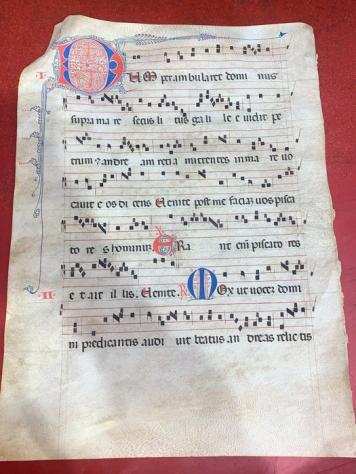 ·I· DUM perambularet domi nus
supra ma re secus li tus ga li le e vidit pe
trum ⁊ andre am recia mittentes in ma re vo
cavit e os di cens Venite post me faciam vos pisca
to re s hominum ERa nt enim piscato res
·II· e t ait il lis. Venite. MOx ut vocem domi
ni predicantis audi vit beatus an dreas relic tis